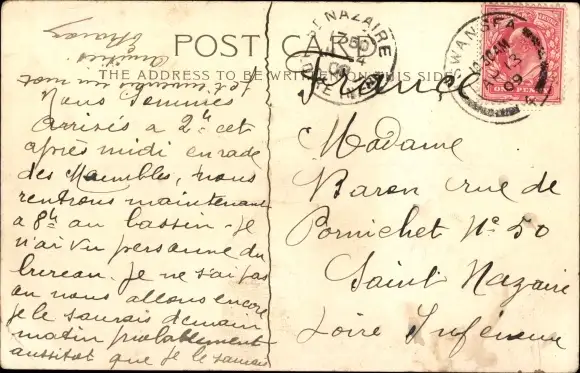 POST CARD
THE ADDRESS TO BE WRITTEN ON THIS SIDE
Nous sommes
arrivés a 2h cet
après midi en rade
des Mumbles, nous
rentrons maintenant
a 8h au bassin. Je
n'ai vu personne du
bureau. Je ne sai pas
ou nous allons encore
je le saurais demain
matin probablement
aussitot que je le saurais
je t'enverrai un mot
Amitiés
France
Madame
Baron rue de
Pornichet No 50
Saint Nazaire
Loire Inférieure
ST NAZAIRE
SWANSEA
09
ONE PENNY